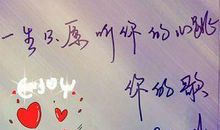 一生只愿听你的心跳
你的歌